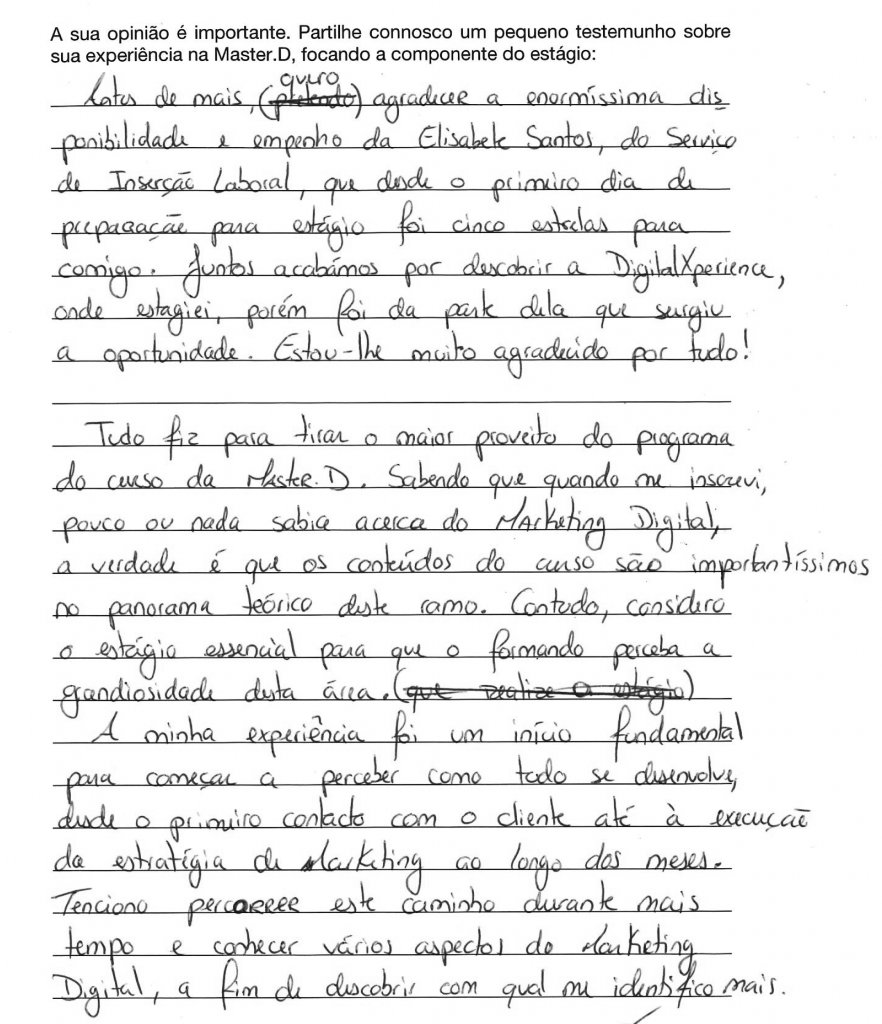 A sua opinião é importante. Partilhe connosco um pequeno testemunho sobre
sua experiência na Master.D, focando a componente do estágio:
quero
Antes de mais, (pretendo) agradecer a enormíssima dis
ponibilidade e empenho da Elisabete Santos, do Serviço
de Inserção Laboral, que desde o primeiro dia de
preparação para estágio foi cinco estrelas para
comigo. Juntos acabámos por descobrir a DigitalXperience,
onde estagiei, porém foi da parte dela que surgiu
a oportunidade. Estou-lhe muito agradecido por tudo!
Tudo fiz para tirar o maior proveito do programa
do curso da Master.D. Sabendo que quando me inscrevi,
pouco ou nada sabia acerca do Marketing Digital,
a verdade é que os conteúdos do curso são importantíssimos
no panorama teórico deste ramo. Contudo, considero
o estágio essencial para que o formando perceba a
grandiosidade desta área. (que realize o estágio)
A minha experiência foi um início fundamental
para começar a perceber como tudo se desenvolve,
desde o primeiro contacto com o cliente até à execução
da estratégia de Marketing ao longo dos meses.
Tenciono percorrer este caminho durante mais
tempo e conhecer vários aspectos do Marketing
Digital, a fim de descobrir com qual me identifico mais.